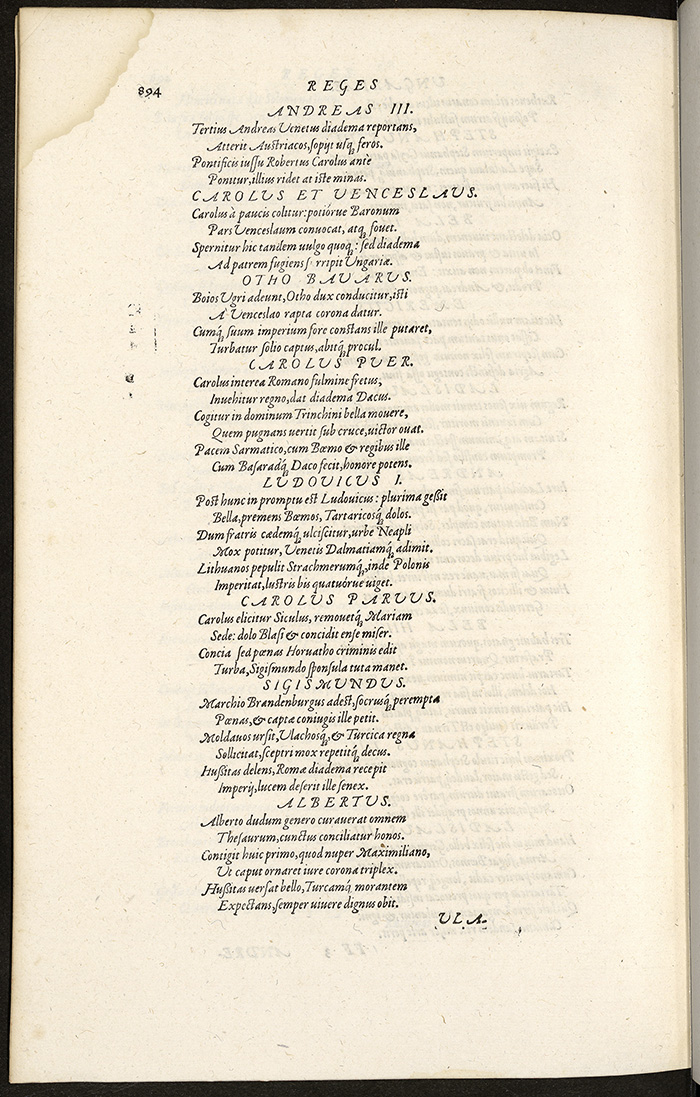 894
REGES
ANDREAS III.
Tertius Andreas Venetus diadema reportans,
Atterit Austriacos, sopijt usq; feros.
Pontificis iussu Robertus Carolus ante
Ponitur, illius ridet at iste minas.
CAROLUS ET VENCESLAVS.
Carolus à paucis colitur: potiórue Baronum
Pars Venceslaum conuocat, atq; fouet.
Spernitur hic tandem uulgo quoq; : sed diadema
Ad patrem fugiens s rripit Ungariæ.
OTHO BAVARUS.
Boios Ugri adeunt, Otho dux conducitur, isti
A Venceslao rapta corona datur.
Cumq; suum imperium fore constans ille putaret,
Turbatur solio captus, abitq; procul.
CAROLUS PUER.
Carolus interea Romano fulmine fretus,
Inuehitur regno, dat diadema Dacus.
Cogitur in dominum Trinchini bella mouere,
Quem pugnans uertit sub cruce, uictor ouat.
Pacem Sarmatico, cum Bœmo & regibus ille
Cum Basaradq; Daco fecit, honore potens.
LUDOVICUS I.
Post hunc in promptu est Ludouicus: plurima gessit
Bella, premens Bœmos, Tartaricosq; dolos.
Dum fratris cædemq; ulciscitur, urbe Neapli
Mox potitur, Venetis Dalmatiamq; adimit.
Lithuanos pepulit Strachmerumq;, inde Polonis
Imperitat, lustris bis quatuórue uiget.
CAROLUS PARUUS.
Carolus elicitur Siculus, remouetq; Mariam
Sede: dolo Blasi & concidit ense miser.
Concia sed pœnas Horuatho criminis edit
Turba, Sigismundo sponsula tuta manet.
SIGISMUNDUS.
Marchio Brandenburgus adest, socrusq; perempta
Pœnas, & captæ coniugis ille petit.
Moldauos ursit, Ulachosq;, & Turcica regna
Sollicitat, sceptri mox repetitq; decus.
Hussitas delens, Romæ diadema recepit
Imperij, lucem deserit ille senex.
ALBERTUS.
Alberto dudum genero curauerat omnem
Thesaurum, cunctus conciliatur honos.
Contigit huic primo, quod nuper Maximiliano,
Ut caput ornaret iure corona triplex.
Hussitas uersat bello, Turcamq; morantem
Expectans, semper uiuere dignus obit.
ULA-